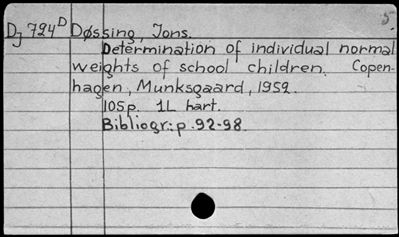 5
Dj 724D Døssing, Jons.
Determination of individual normal
weights of school children. Copen-
hagen, Munksgaard, 1952.
105p. 1L hart.
Bibliogr.: p. 92-98.